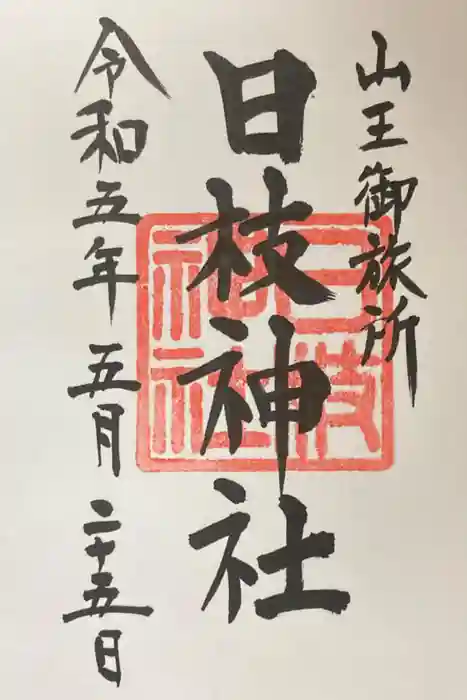 山王御旅所
日枝神社
令和五年五月二十五日
日枝
神社